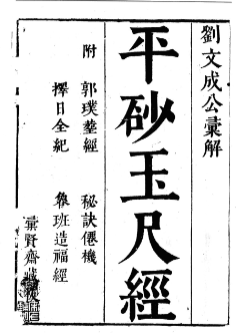 劉文成公彙解
平砂玉尺經
附 郭璞塟經 秘訣僊機
擇日全紀 魯班造福經
彙賢齋藏板